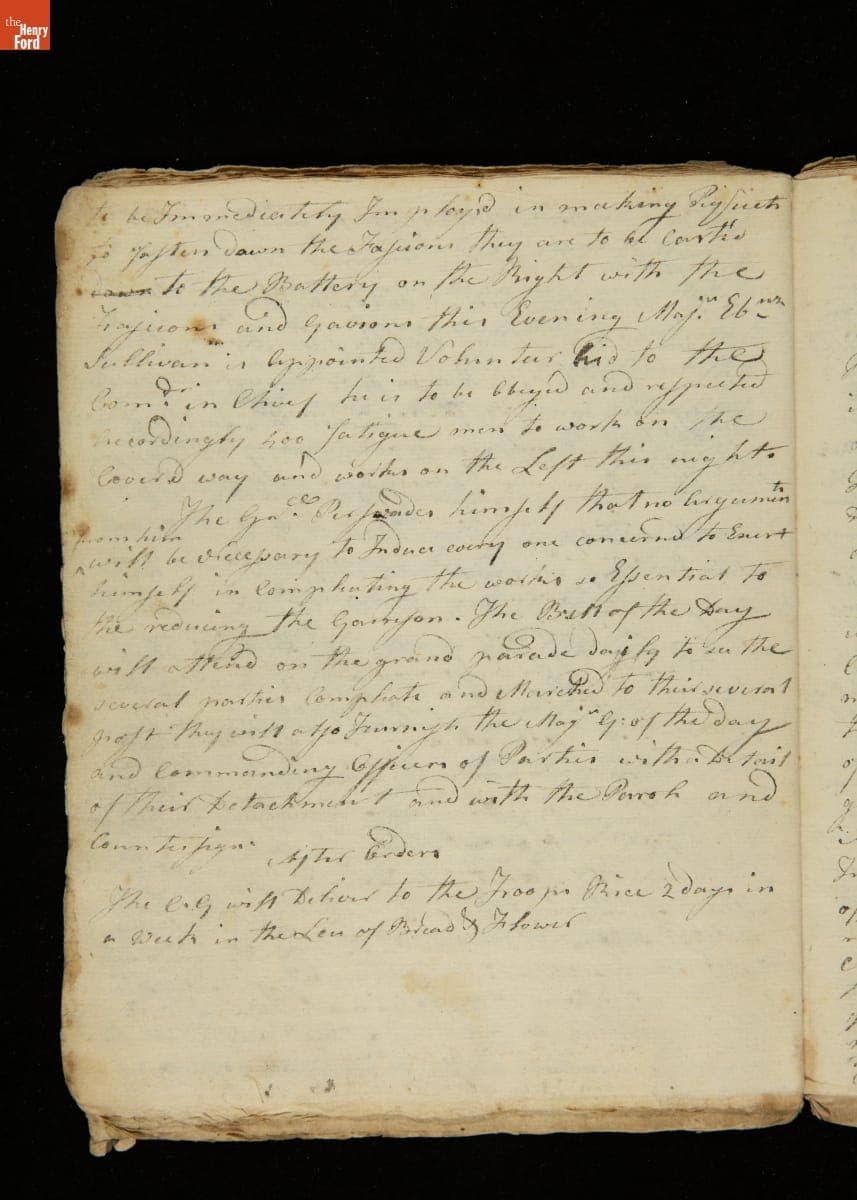 the Henry Ford
to be Immediately Imployd in making
to fasten down the Fasiens they are to be carted
down to the Battery on the Right with the
Fasicons and Gavions this Evening Majr. Ebnzr
Sullivan is Appointed Volunteer Aid to the
Comdr. in Chief he is to be obeyed and respected
Accordingly 400 fatigue men to work on the
Coverd way and works on the Left this night
The Genl. Perswades himself that no Argumints
from him
will be Necessary to Induce every one concernd to Exert
himself in Compleating the works so Essential to
the reducing the Garrison. The of the Day
will attend on the grand parade dayly to see the
several parties Compleate and Marched to their several
post they will also Furnish the Majr. G: of the day
and Commanding Officers of Parties with a Detail
of their Detachment and with the Parole and
Countersign.
After Orders
The will Deliver to the Troops Rice 2 days in
a Week in the Leu of Bread & Flower